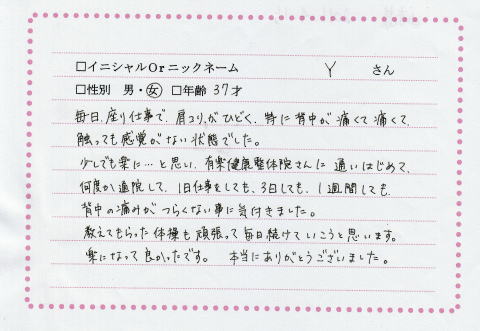 □イニシャルOrニックネーム Y さん
□性別 男・女 □年齢 37才
毎日、座り仕事で、肩コリがひどく、特に背中が痛くて痛くて、
触っても感覚がない状態でした。
少しでも楽に…と思い、有楽健康整体院さんに通いはじめて、
何度か通院して、1日仕事をしても、3日しても、1週間しても、
背中の痛みがつらくない事に気付きました。
教えてもらった体操も頑張って毎日続けていこうと思います。
楽になって良かったです。 本当にありがとうございました。